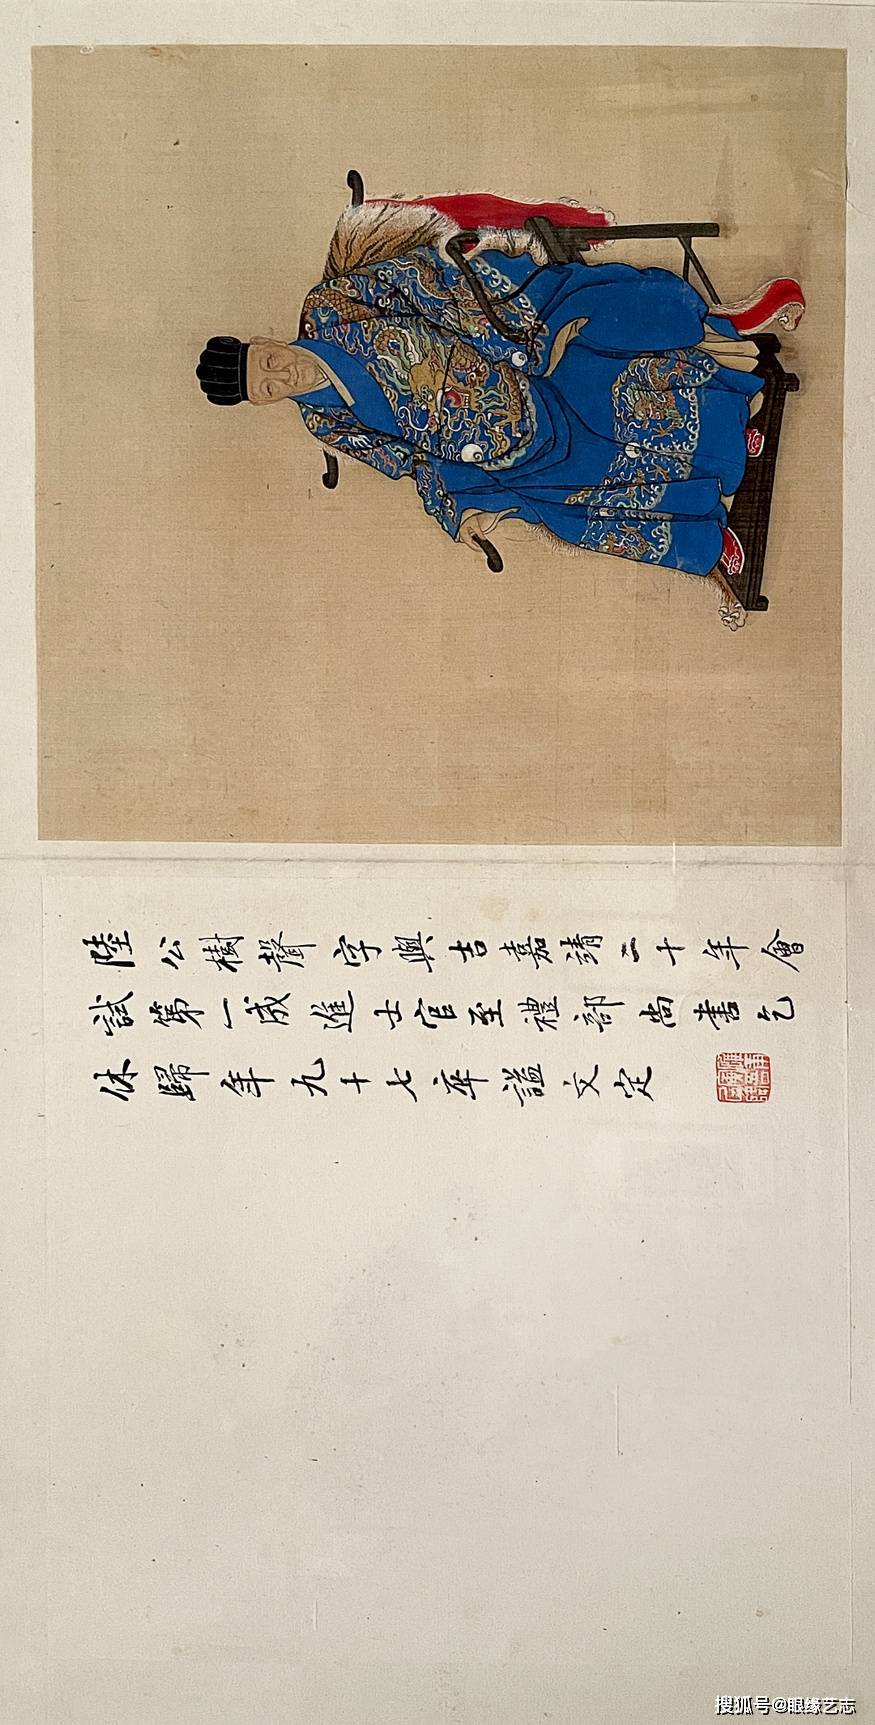 陸公樹聲字與吉嘉靖二十年會
試第一成進士官至禮部尚書乞
休歸年九十七卒謚文定
搜狐号@眼缘艺志